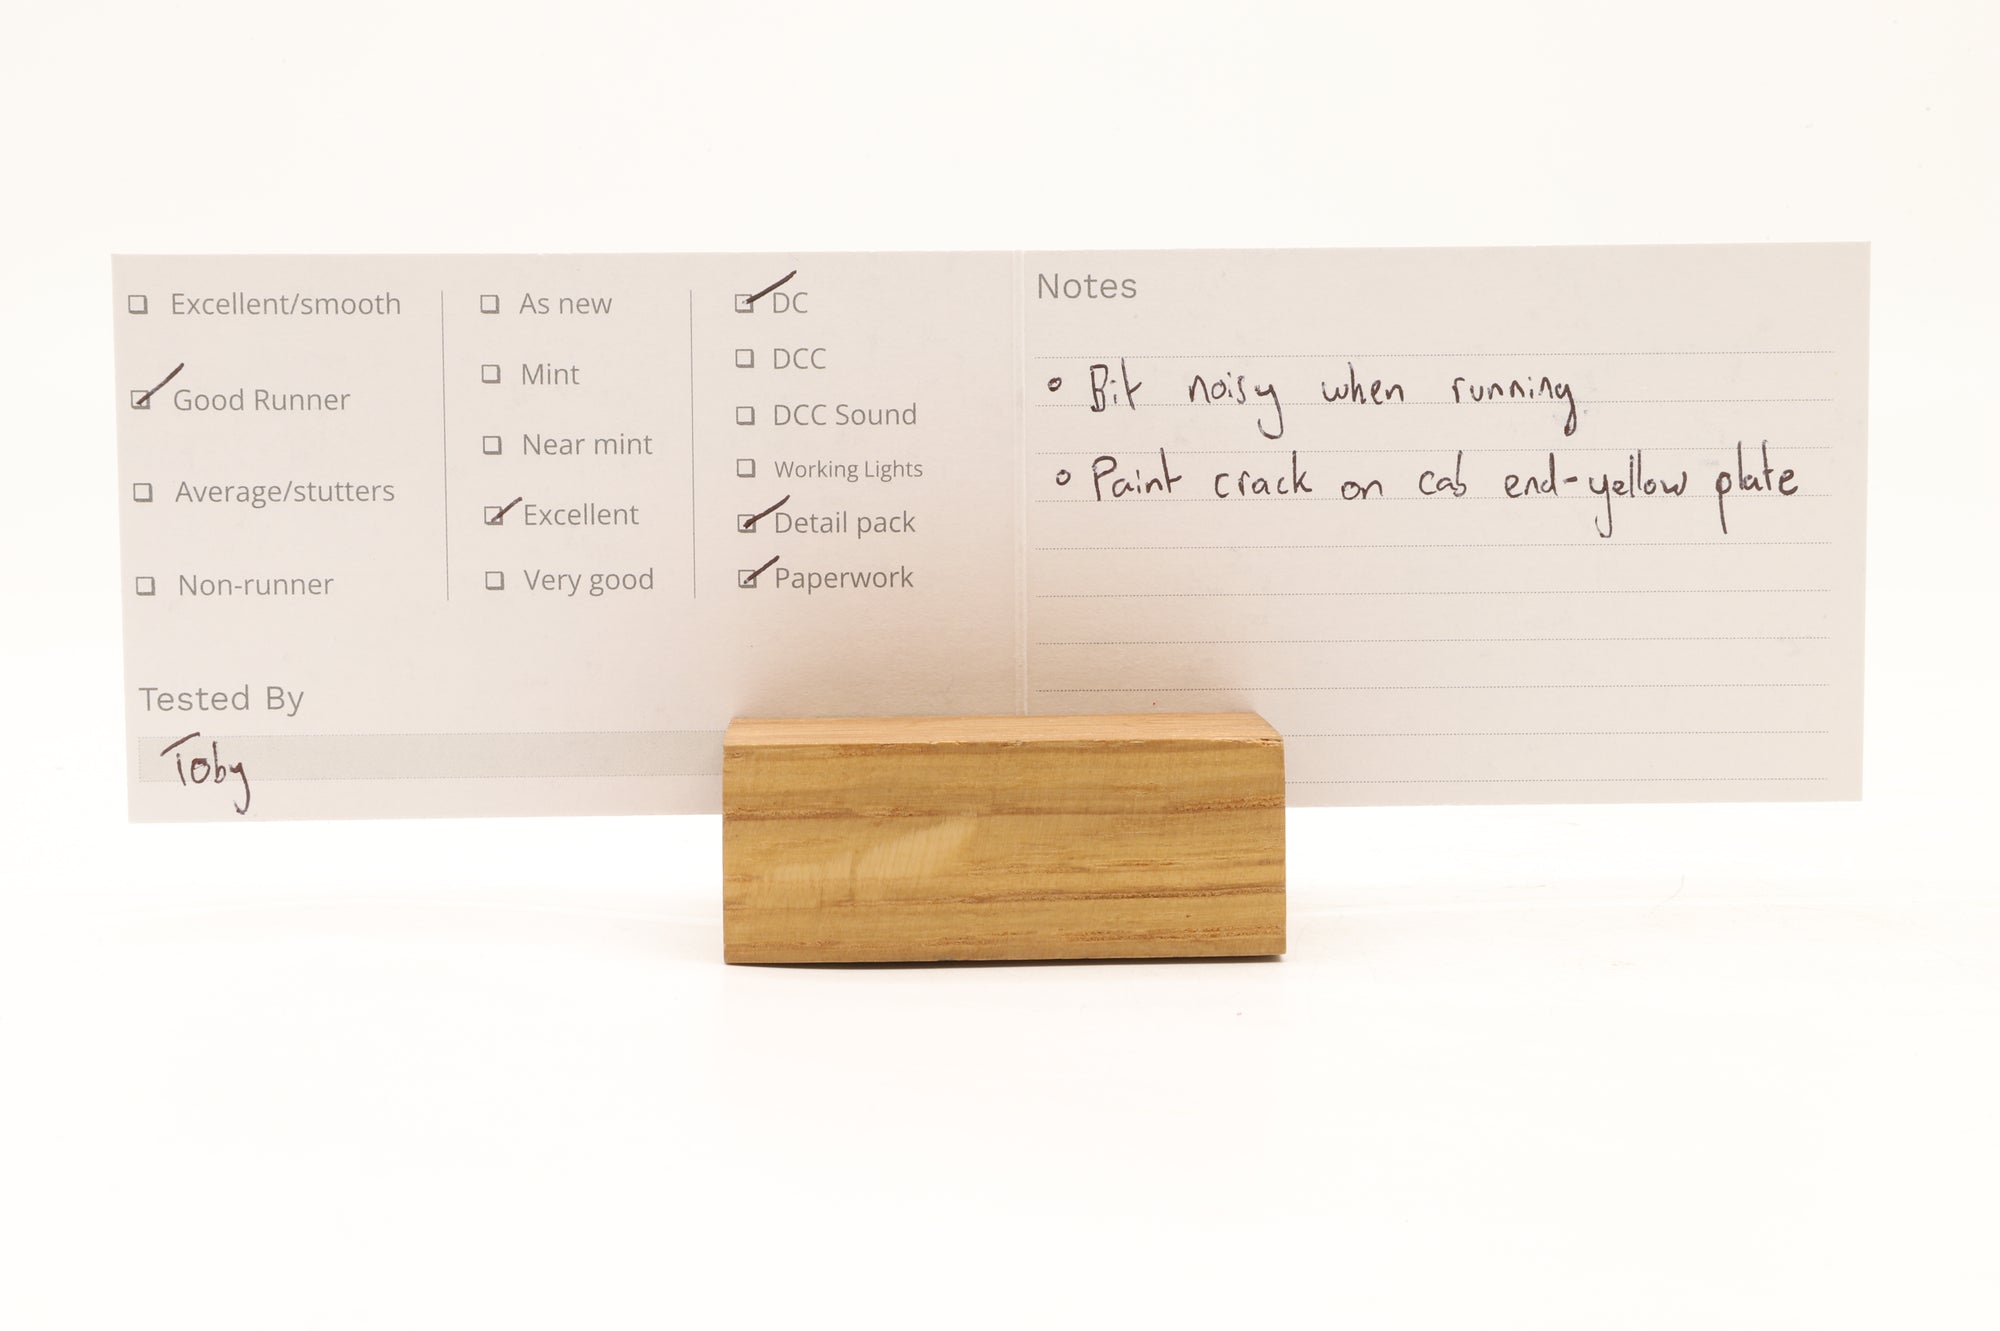 Excellent/smooth
Good Runner
Average/stutters
Non-runner
As new
Mint
Near mint
Excellent
Very good
DC
DCC
DCC Sound
Working Lights
Detail pack
Paperwork
Tested By
Toby
Notes
Bit noisy when running
Paint crack on cab end-yellow plate